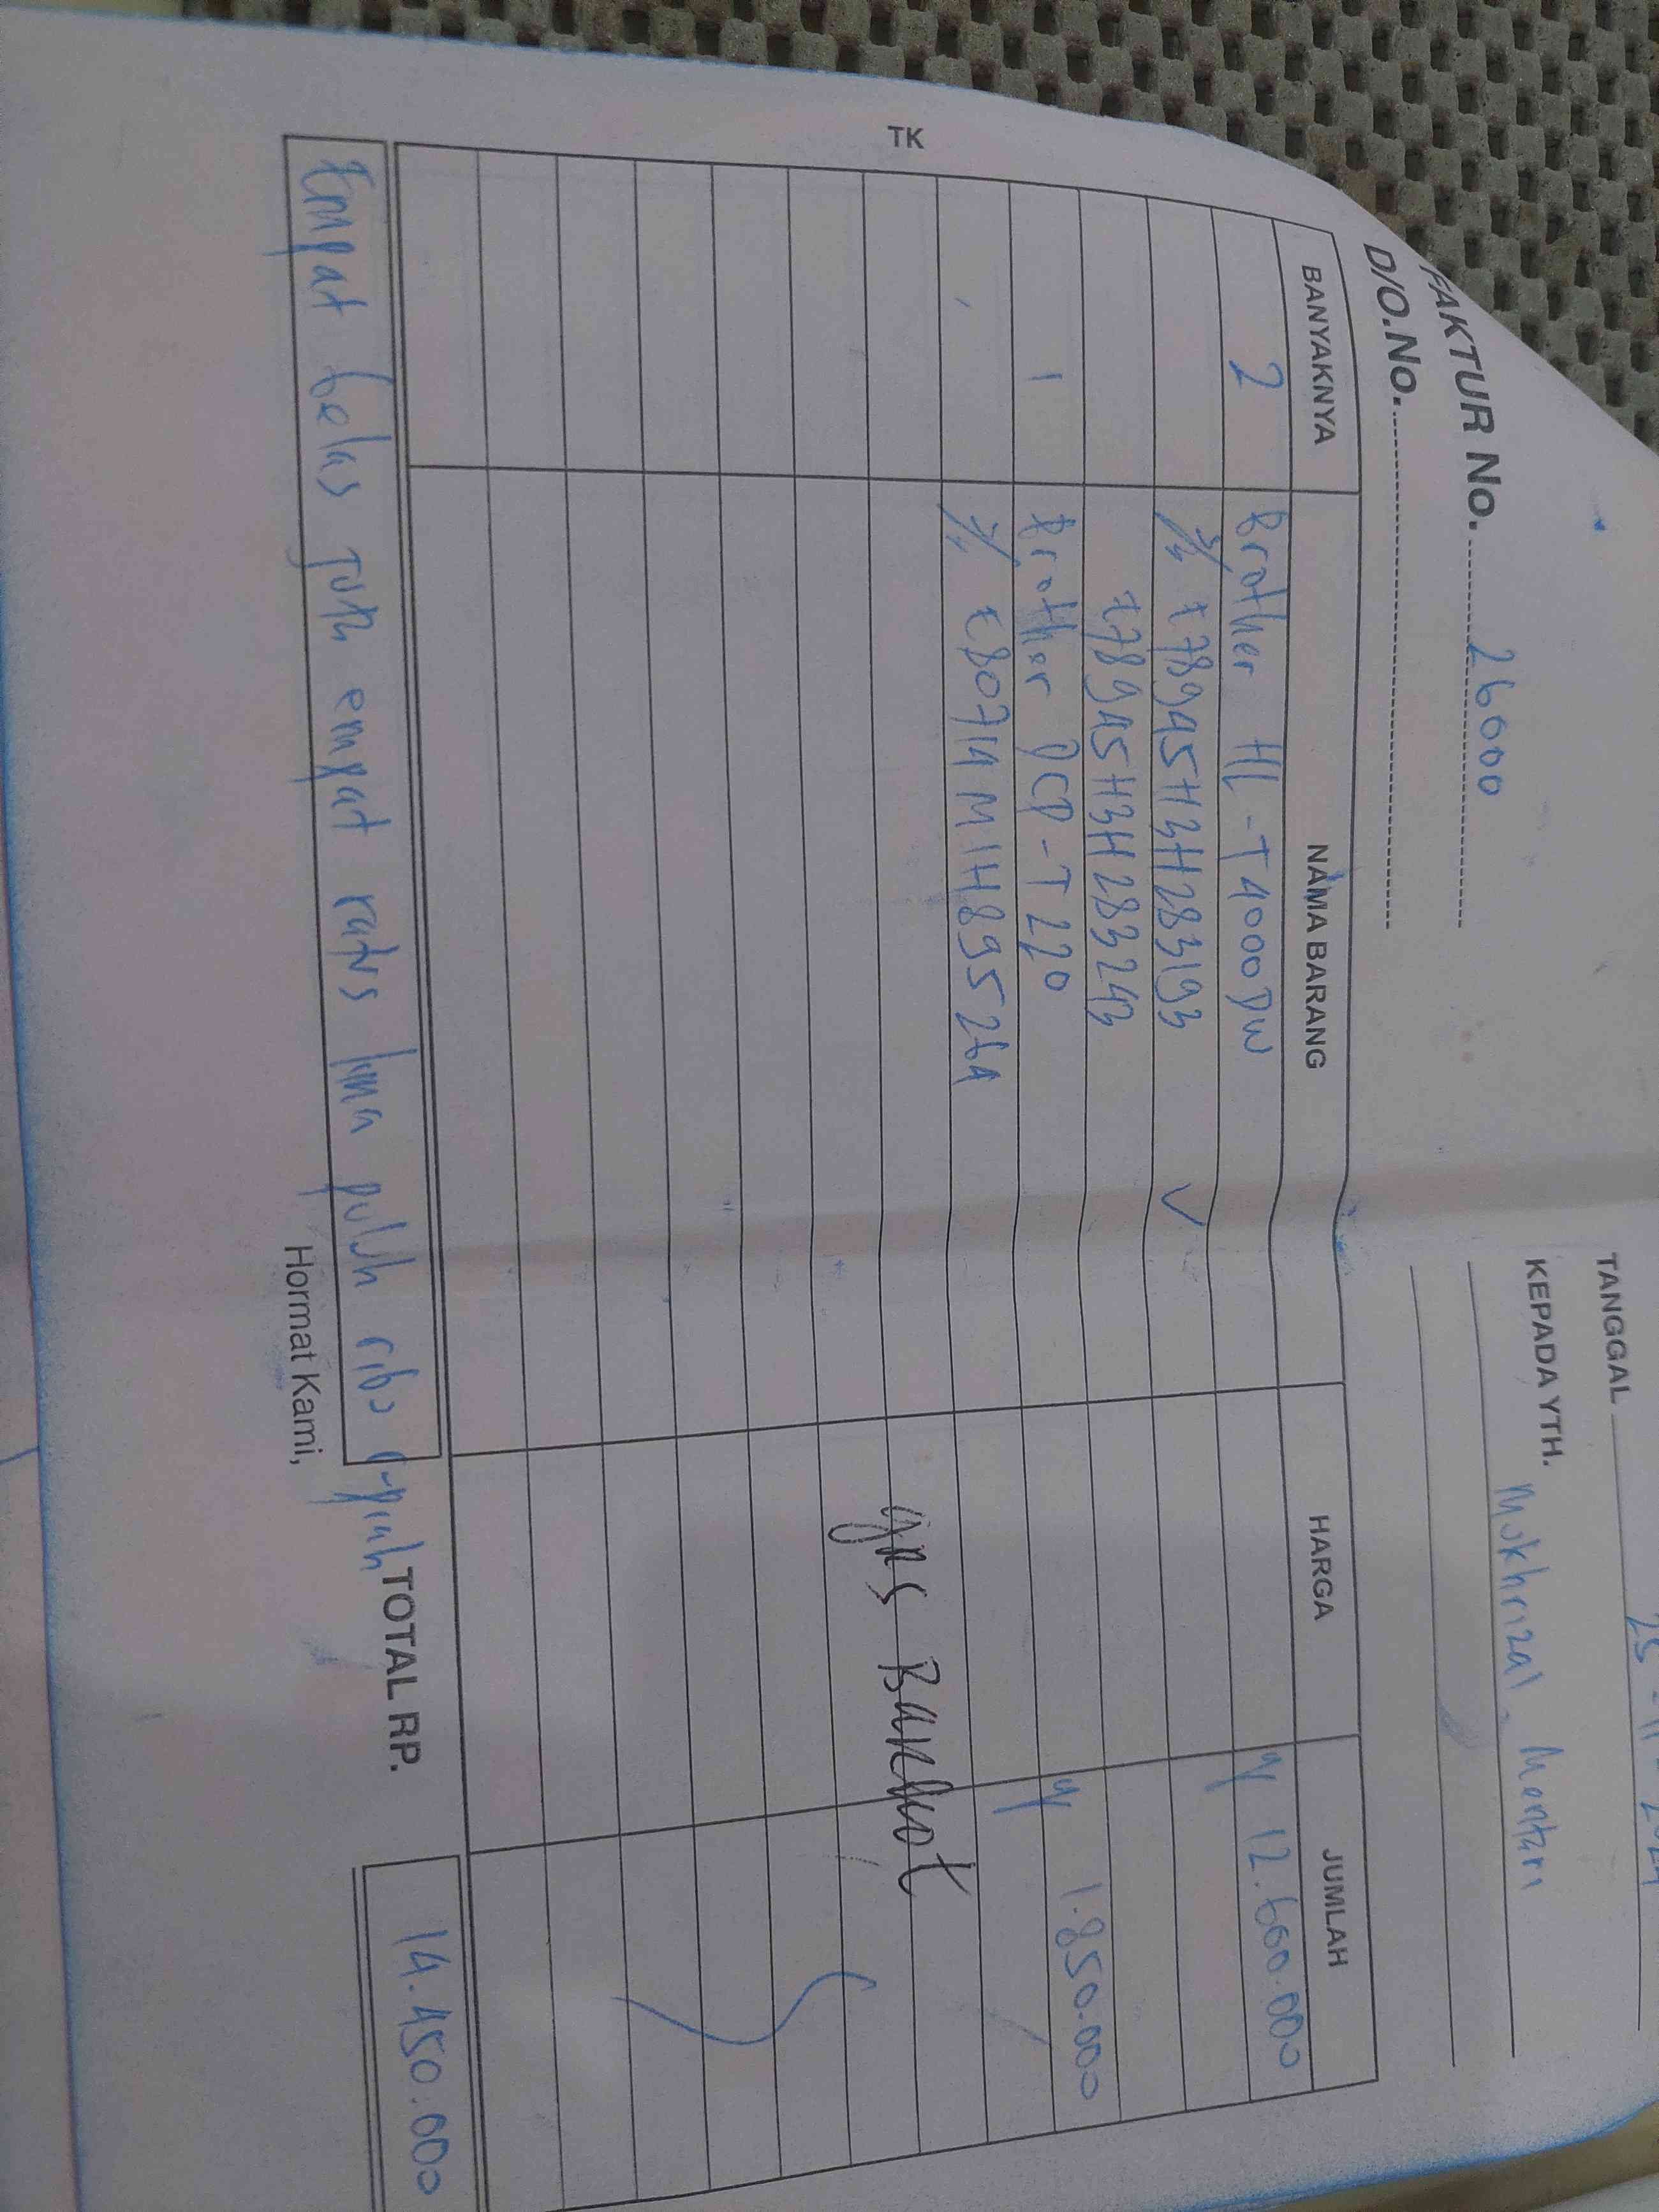 FAKTUR No. 26000
D/O.No.
TANGGAL 25 - 11 - 2024
KEPADA YTH. Mukhrizal. Mentari
BANYAKNYA NAMA BARANG HARGA JUMLAH
2 Brother HL-T4000DW 12.600.000
E78945H3H283193 ✓
E78945H3H283243
1 Brother DCP-T220 1.850.000
E80714M1H895264
TK
Empat belas juta empat ratus lima puluh ribu rupiah
TOTAL RP. 14.450.000
Hormat Kami,